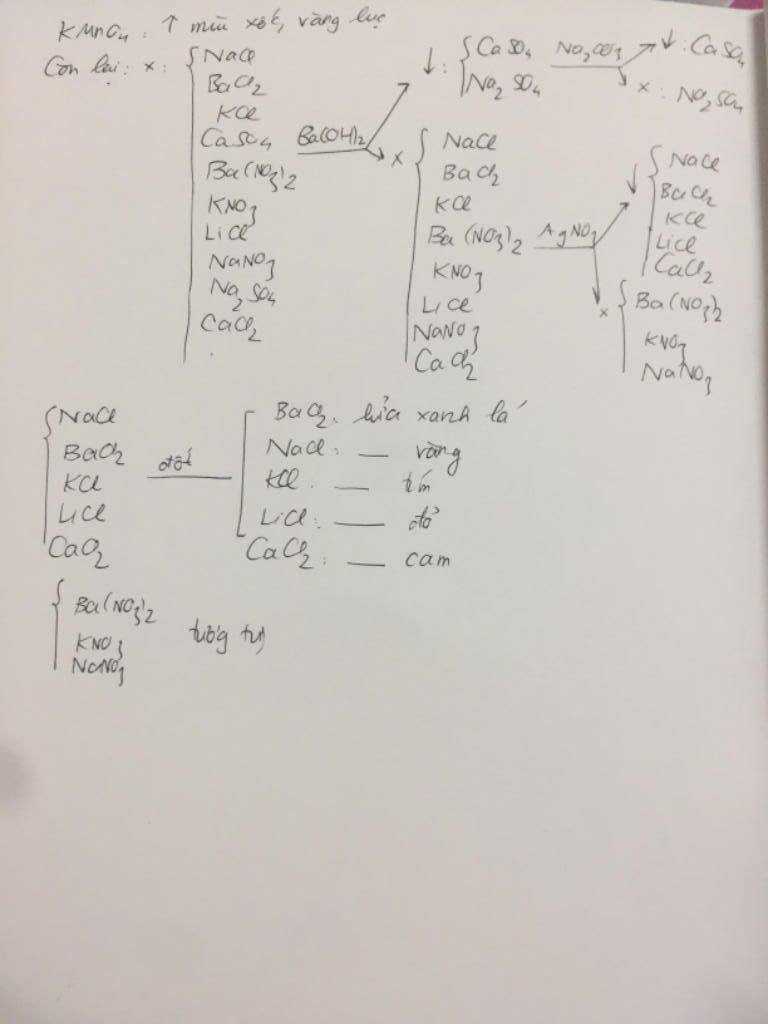 KMnO4: ↑ mùi xốc, vàng lục
Còn lại: x:
NaCl
BaCl2
KCl
CaSO4
Ba(NO3)2
KNO3
LiCl
NaNO3
Na2SO4
CaCl2
Ba(OH)2
↓: CaSO4
Na2SO4
Na2CO3
↓: CaSO4
x: Na2SO4
x
NaCl
BaCl2
KCl
Ba(NO3)2
KNO3
LiCl
NaNO3
CaCl2
AgNO3
↓
NaCl
BaCl2
KCl
LiCl
CaCl2
x
Ba(NO3)2
KNO3
NaNO3
NaCl
BaCl2
KCl
LiCl
CaCl2
đốt
BaCl2: lửa xanh lá
NaCl: — vàng
KCl: — tím
LiCl: — đỏ
CaCl2: — cam
Ba(NO3)2
KNO3
NaNO3
tương tự